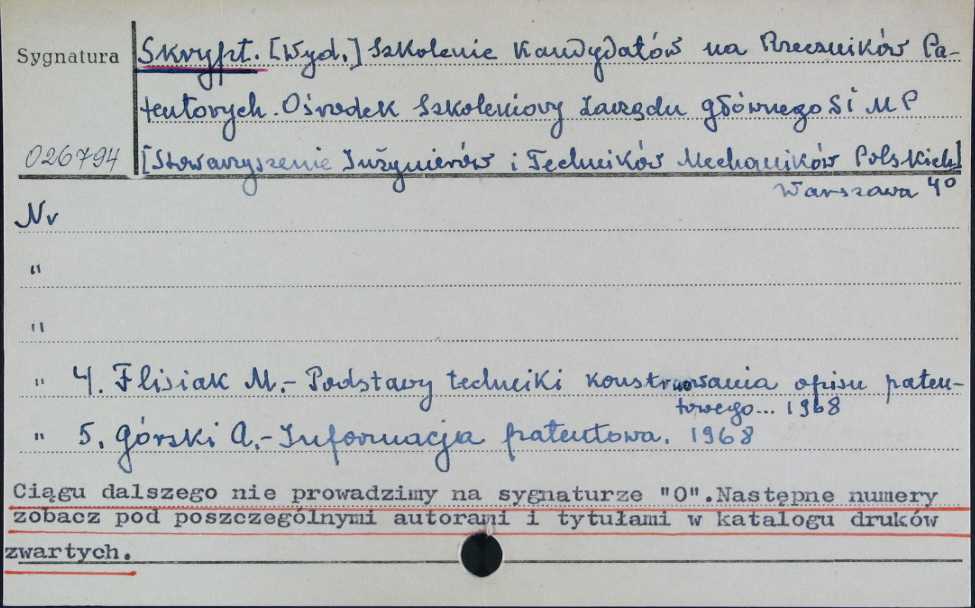 Sygnatura Skrypt. [Wyd.] Szkolenie Kandydatów na Rzeczników Pa-
tentowych. Ośrodek Szkoleniowy Zarządu głównego SIMP
026794 [Stowarzyszenie Inżynierów i Techników Mechaników Polskich]
Warszawa 4°
Nr
"
"
" 4. Flisiak M.- Podstawy techniki konstruowania opisu paten-
towego... 1968
" 5. Górski A.- Informacja patentowa. 1968
Ciągu dalszego nie prowadzimy na sygnaturze "O".Następne numery
zobacz pod poszczególnymi autorami i tytułami w katalogu druków
zwartych.